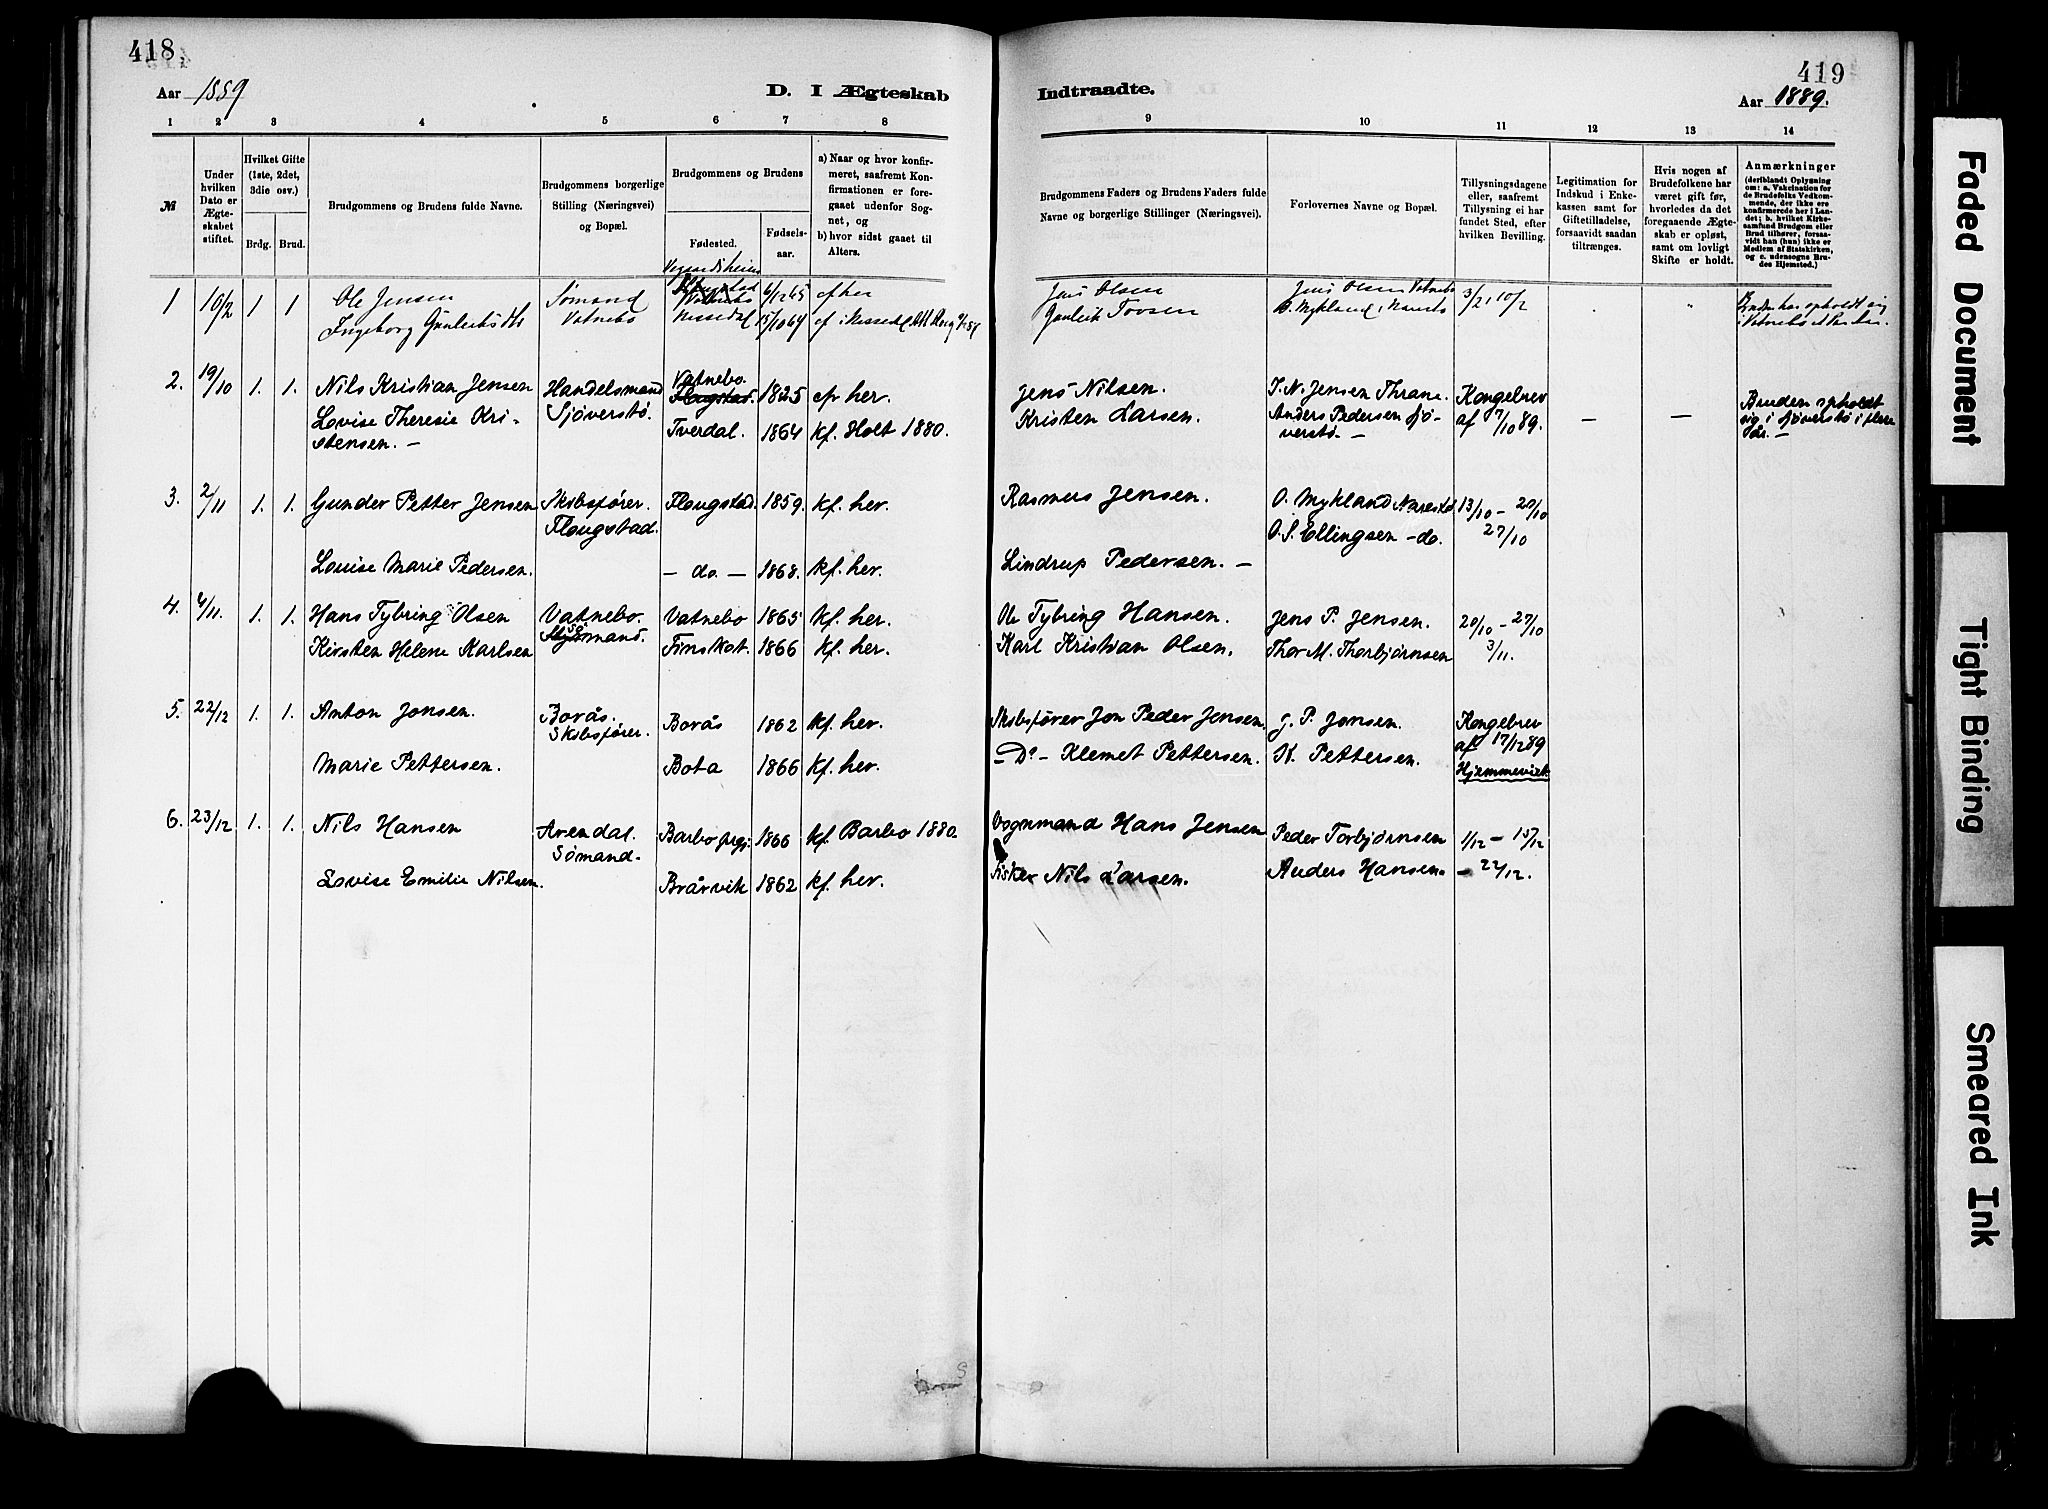 418
Aar 1889
D. I Ægteskab
1 2 3 4 5 6 7 8
№
Under hvilken Dato er Ægteskabet stiftet.
Hvilket Gifte (1ste, 2det, 3die osv.)
Brdg. Brud.
Brudgommens og Brudens fulde Navne.
Brudgommens borgerlige Stilling (Næringsvei) og Bopæl.
Brudgommens og Brudens
Fødested.
Fødselsaar.
a) Naar og hvor konfirmeret, saafremt Konfirmationen er foregaaet udenfor Sognet, og
b) hvor sidst gaaet til Alters.
1 10/2 1 1 Ole Jensen Sømand Vatnebo 6/12 65 cf her
Ingeborg Vatnebo Nissedal 15/10 64 cf i Nissedal
2. 19/10 1. 1. Nils Kristian Jensen Handelsmand Vatnebo. Flougstad. 1825 cf her.
Lovise Theresie Kri- Sjöverstö. Tverdal. 1864 kf. Holt 1880.
stensen. —
3. 2/11 1. 1. Gunder Petter Jensen Skibsförer. Flougstad. 1859. kf. her.
Flougstad.
Louise Marie Pedersen. — do. — 1868. kf. her.
4. 4/11. 1. 1. Hans Tybring Olsen Vatnebo. Vatnebo 1865 kf. her.
Kirsten Helene Karlsen Sömand. Finskot. 1866 kf. her.
5. 22/12 1. 1. Anton Jonsen. Borås. Borås 1862 kf. her.
Skibsförer.
Marie Pettersen. Bota 1866 kf. her.
6. 23/12 1. 1. Nils Hansen Arendal. Barbo prgj: 1866 kf. Barbo 1880.
Sömand.
Lovise Emilie Nilsen. Brårvik 1862 kf. her.
419
Indtraadte.
Aar 1889.
9 10 11 12 13 14
Brudgommens Faders og Brudens Faders fulde Navne og borgerlige Stillinger (Næringsvei).
Forlovernes Navne og Bopæl.
Tillysningsdagene eller, saafremt Tillysning ei har fundet Sted, efter hvilken Bevilling.
Legitimation for Indskud i Enkekassen samt for Giftetilladelse, forsaavidt saadan tiltrænges.
Hvis nogen af Brudefolkene har været gift før, hvorledes da det foregaaende Ægteskab er opløst, samt om lovligt Skifte er holdt.
Anmærkninger
(deriblandt Oplysning om: a. Vakcination for de Brudefolks Vedkommende, der ikke ere konfirmerede her i Landet; b. hvilket Kirkesamfund Brudgom eller Brud tilhører, forsaavidt han (hun) ikke er Medlem af Statskirken, og c. udensogns Brudes Hjemsted.)
Jens Olsen Jens Olsen Vatnebo 3/2, 10/2 Bruden har opholdt sig
Gunleik Tovsen O. Mykland, Narestö i Vatnebo
Jens Nilsen. J. N. Jensen Thrane. Kongebrev Bruden opholdt
Kristen Larsen. Anders Pedersen Sjö- af 7/10 89. — — sig i Sjöverstö i flere
verstö. — år. —
Rasmus Jensen. O. Mykland Narestö 13/10 — 20/10
O. S. Ellingsen — do. 27/10
Lindrup Pedersen. —
Ole Tybring Hansen. Jens P. Jensen. 20/10 — 27/10
Karl Kristian Olsen. Thor M. Thorbjörnsen 3/11.
Skibsförer Jon Peder Jensen. J. P. Jonsen. Kongebrev
af 17/12 89
— Do — Klemet Pettersen. K. Pettersen. Hjemmeviet
Vognmand Hans Jensen Peder Torbjörnsen 1/12 — 15/12
Fisker Nils Larsen. Anders Hansen. — 22/12.
Faded Document
Tight Binding
Smeared Ink